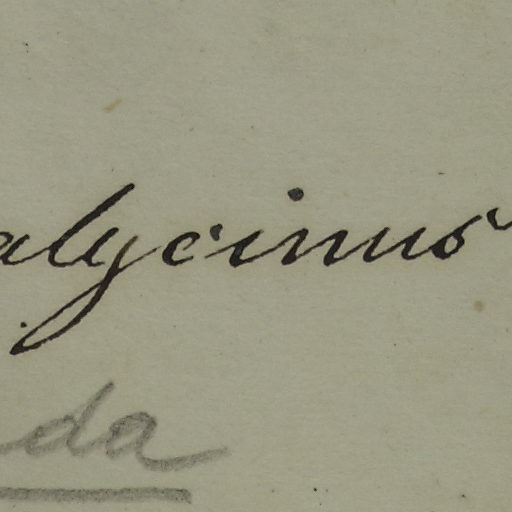 alycinus
da